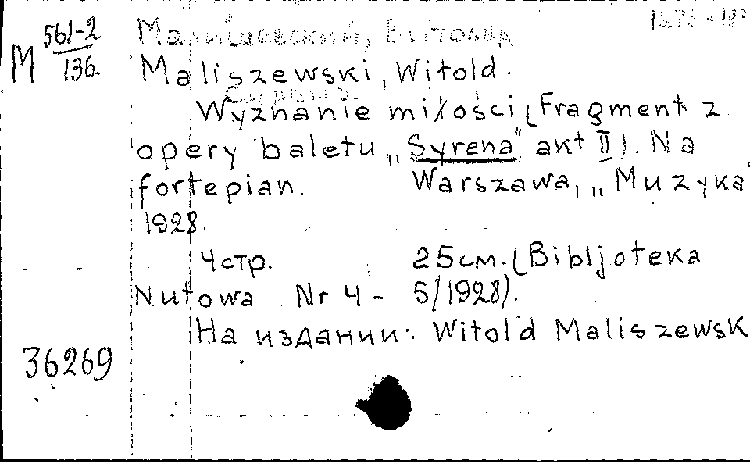 М 561-2
136
Малишевский, Витольд
Maliszewski, Witold.
Wyznanie miłości (Fragment z
opery baletu „Syrena" akt II). Na
fortepian. Warszawa, „Muzyka"
1928.
4 стр. 25 см. (Bibljoteka
Nutowa Nr 4 - 5/1928).
На издании: Witold Maliszewsk
36269